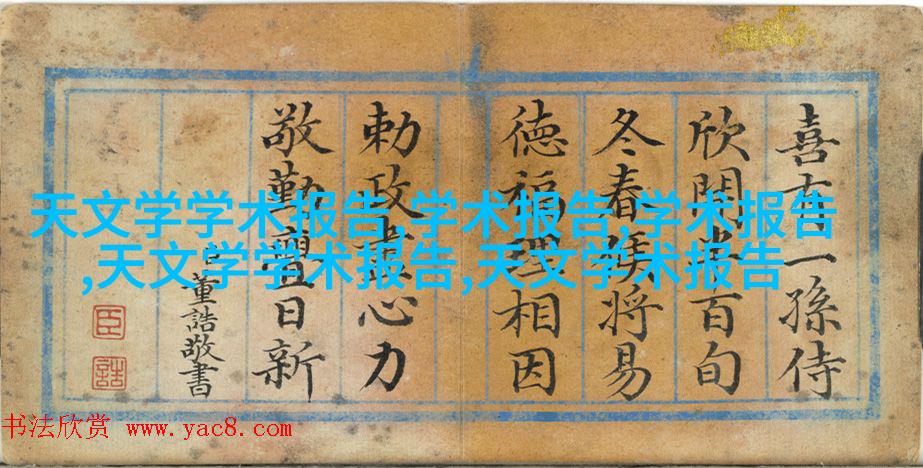 喜一孫侍
欣開百旬
冬春候將易
德福理相因
勅政盡心力
敬勤日新
臣董誥敬書
臣
誥
天文学学术报告,学术报告,学术报告
,天文学学术报告,天文学术报告
书法欣赏 www.yac8.com